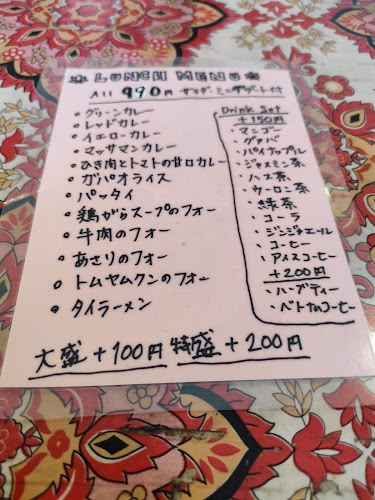 ☆ LUNCH MENU ☆
All 990円 サラダ・ミニデザート付
◦ グリーンカレー
◦ レッドカレー
◦ イエローカレー
◦ マッサマンカレー
◦ ひき肉とトマトの甘口カレー
◦ ガパオライス
◦ パッタイ
◦ 鶏がらスープのフォー
◦ 牛肉のフォー
◦ あさりのフォー
◦ トムヤムクンのフォー
◦ タイラーメン
Drink Set
+150円
・マンゴー
・グァバ
・パイナップル
・ジャスミン茶
・ハス茶
・ウーロン茶
・緑茶
・コーラ
・ジンジャエール
・コーヒー
・アイスコーヒー
+200円
・ハーブティー
・ベトナムコーヒー
大盛+100円 特盛+200円